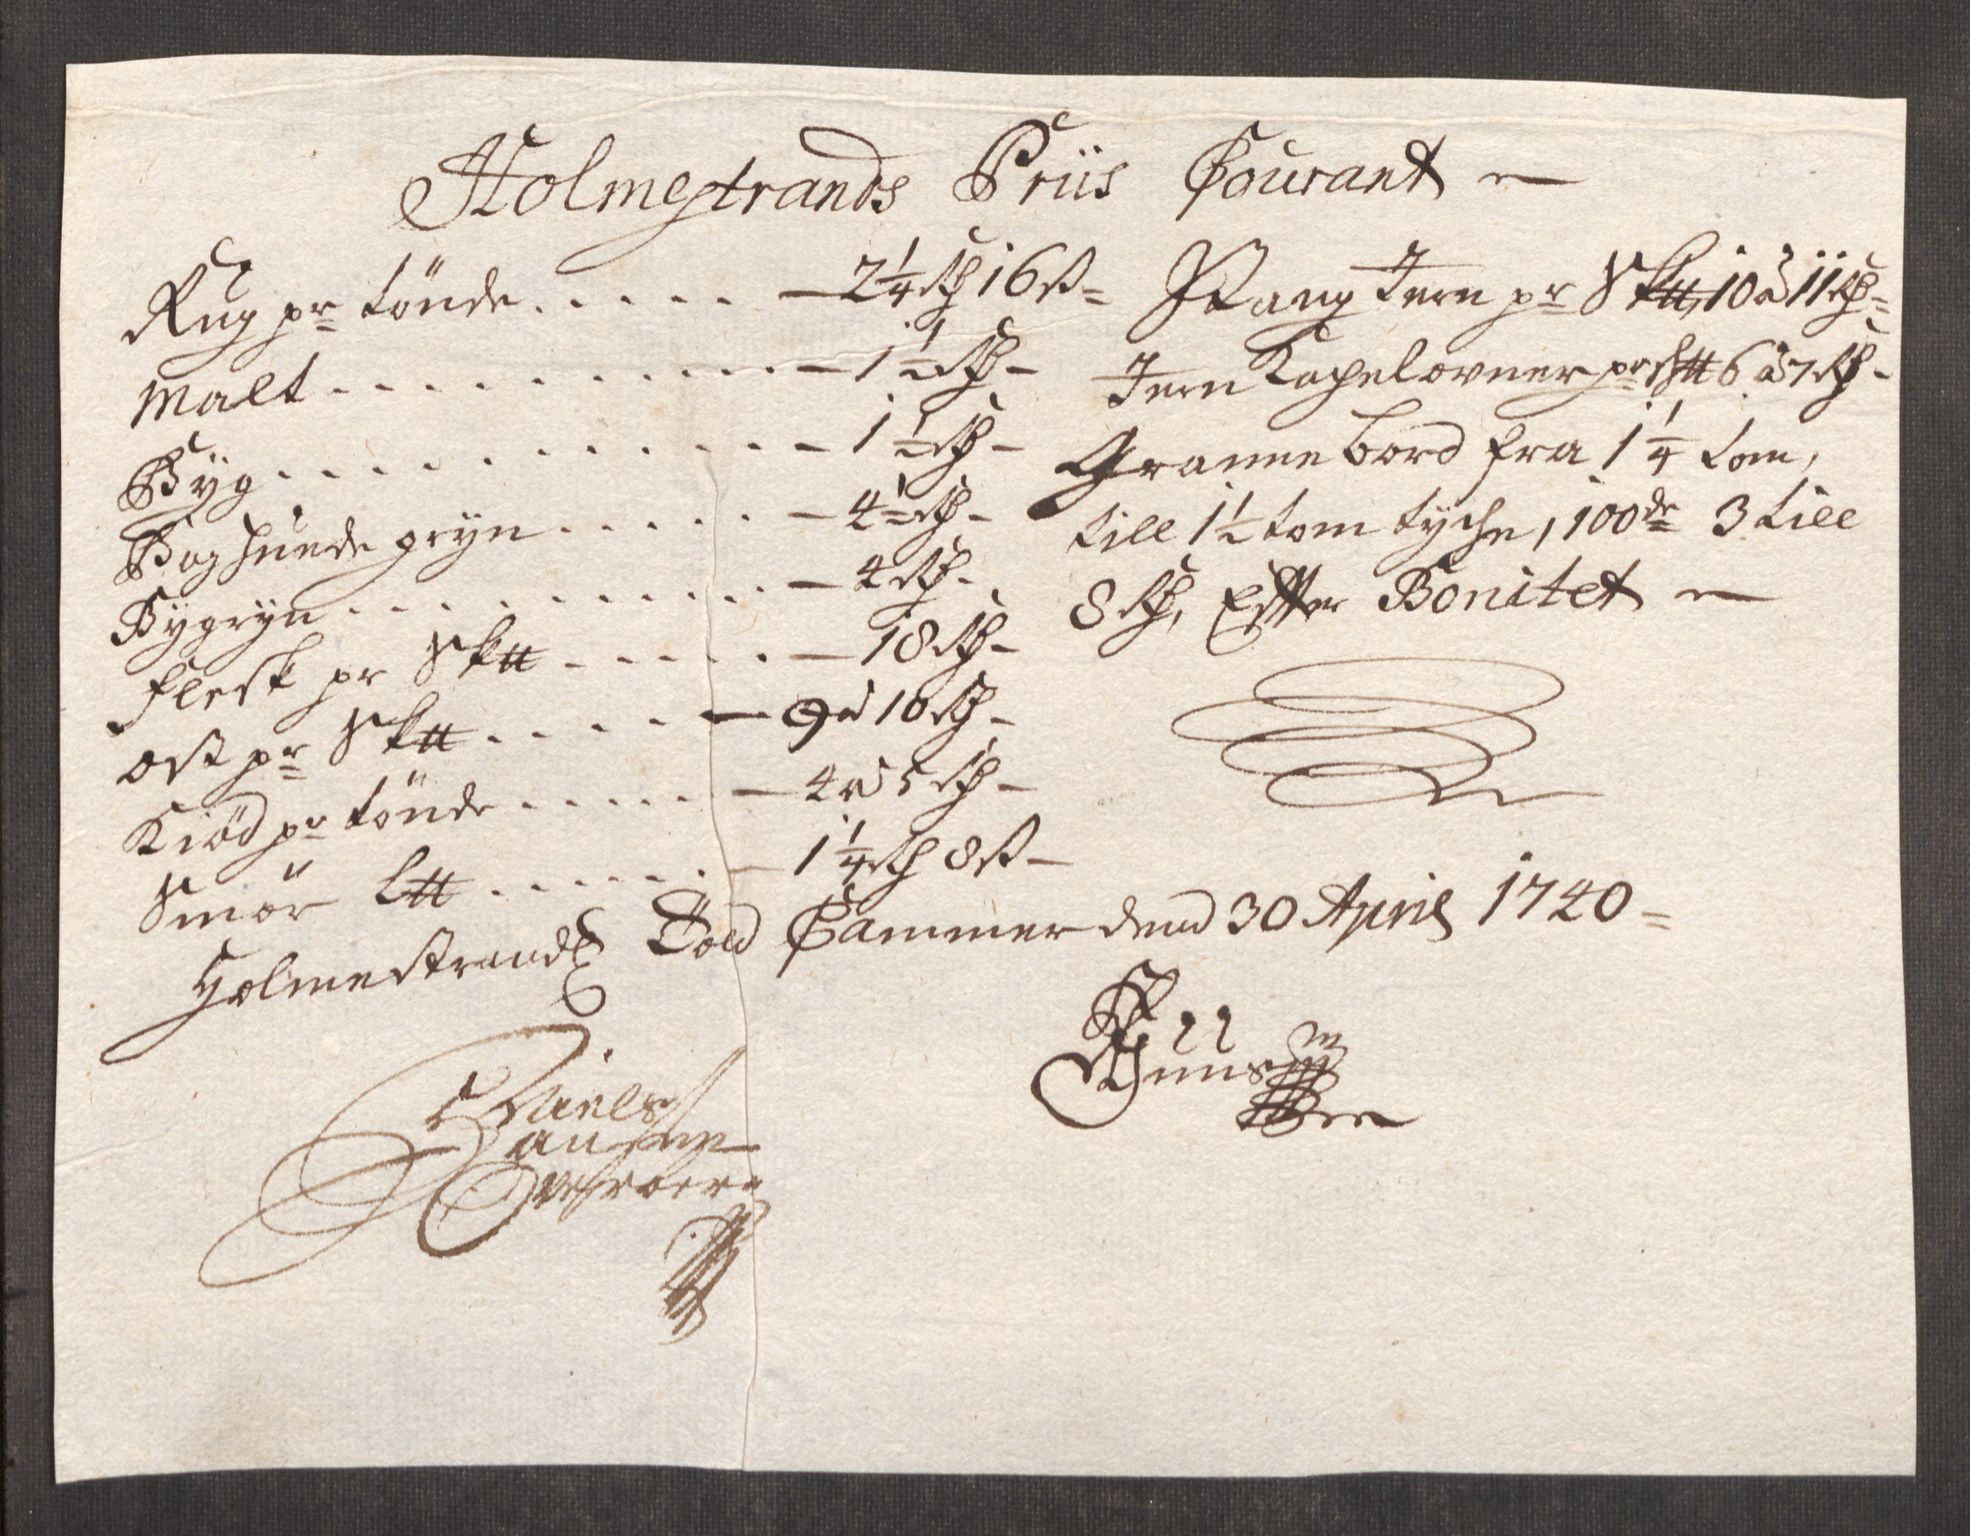 Holmestrands Priis Courant
Rug pr tönde . . . . . 2 1/4 Rdr 16 s
Malt . . . . . . . . . . 1 1/2 Rdr
Byg . . . . . . . . . . . 1 1/2 Rdr
Boghuede gryn . . . . . 4 1/2 Rdr
Bygryn . . . . . . . . . 4 Rdr
Flesk pr Sk℔ . . . . . 18 Rdr
Ost pr Sk℔ . . . . . 9 à 10 Rdr
Kiød pr tönde . . . . . 4 à 5 Rdr
Smör L℔ . . . . . . 1 1/4 Rdr 8 s
Stang Jern pr Sk℔ 10 à 11 Rdr
Jern Kachelovner pr Sk℔ 6 à 7 Rdr
Granne bord fra 1 1/4 tom,
till 1 1/2 tom tyche, 100de 3 till
8 Rdr, Efter Bonitet
Holmestrands Told Cammer dend 30 April 1740
Niels
Hansen